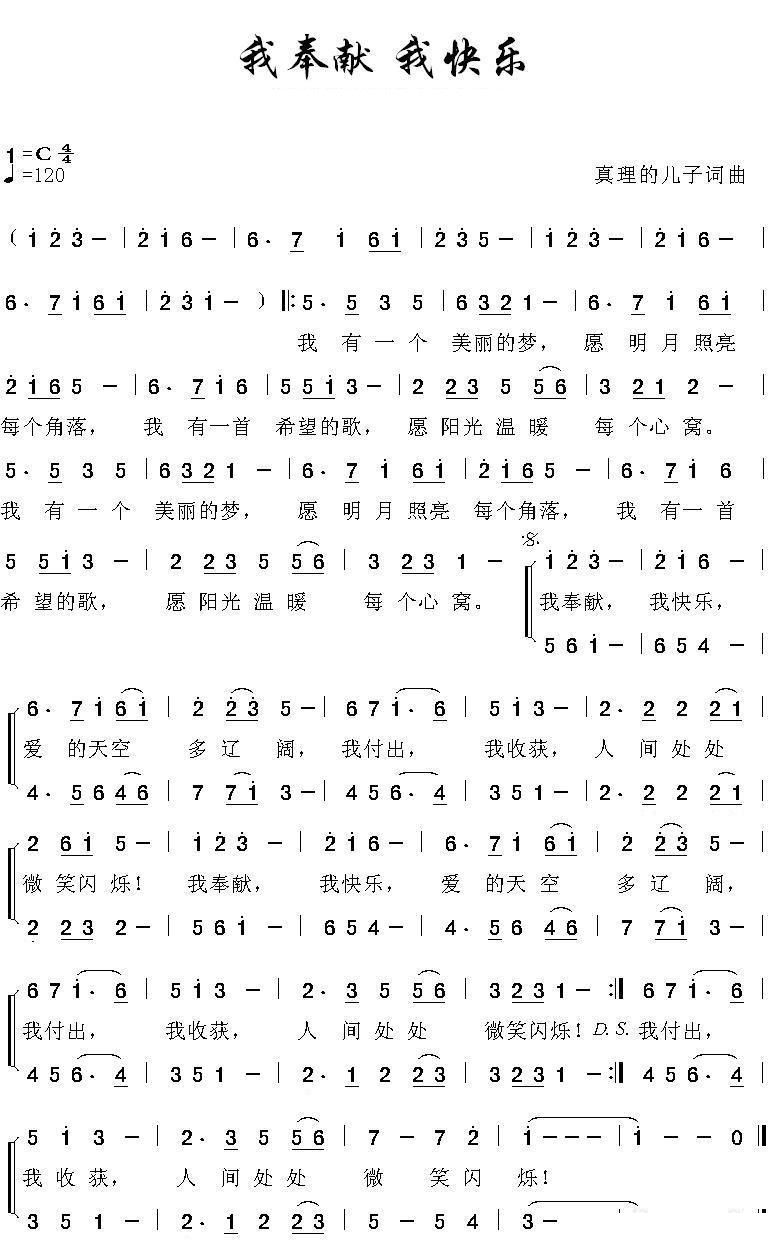 我奉献 我快乐
1=C 4/4
♩=120
真理的儿子词曲
( i̇ 2̇ 3̇ － | 2̇ 1̇ 6 － | 6． 7 i 6i | 2̇ 3̇ 5 － | i 2̇ 3̇ － | 2̇ i 6 － |
6． 7 i 6 i | 2̇ 3̇ i － ) ‖: 5． 5 3 5 | 6 3 2 1 － | 6． 7 i 6 i |
我 有 一 个 美丽的梦， 愿 明 月 照亮
2̇ i 6 5 － | 6． 7 i 6 | 5 5 i 3 － | 2 2 3 5 5 6 | 3 2 1 2 － |
每个角落， 我 有一首 希望的歌， 愿 阳光 温 暖 每 个心 窝。
5． 5 3 5 | 6 3 2 1 － | 6． 7 i 6 i | 2̇ i 6 5 － | 6． 7 i 6 |
我 有 一 个 美丽的梦， 愿 明 月 照亮 每个角落， 我 有一 首
5 5 i 3 － | 2 2 3 5 5 6 | 3 2 3 1 － i 2̇ 3̇ － | 2̇ i 6 － |
希 望的歌， 愿 阳光 温 暖 每 个心 窝。 我奉献， 我快乐，
5 6 i － | 6 5 4 － |
6． 7 i 6 i | 2̇ 2̇ 3̇ 5 － | 6 7 i． 6 | 5 i 3 － | 2̇． 2̇ 2̇ 2̇ i |
爱 的天空 多 辽 阔， 我付出， 我收获， 人 间 处 处
4． 5 6 4 6 | 7 7 i 3 － | 4 5 6． 4 | 3 5 1 － | 2． 2 2 2 1 |
2 6 i 5 － | i 2̇ 3̇ － | 2̇ i 6 － | 6． 7 i 6 i | 2̇ 2̇ 3̇ 5 － |
微 笑闪 烁！ 我奉献， 我快乐， 爱 的天 空 多 辽 阔，
2 2 3 2 － | 5 6 i － | 6 5 4 － | 4． 5 6 4 6 | 7 7 i 3 － |
6 7 i． 6 | 5 i 3 － | 2． 3 5 5 6 | 3 2 3 1 － :‖ 6 7 i． 6 |
我付出， 我收获， 人 间 处 处 微笑闪烁！ D. S. 我付出，
4 5 6． 4 | 3 5 1 － | 2． 1 2 2 3 | 3 2 3 1 － :‖ 4 5 6． 4 |
5 i 3 － | 2． 3 5 5 6 | 7 － 7 2̇ | i － － － | i － － 0 ‖
我 收 获， 人 间 处 处 微 笑 闪 烁！
3 5 1 － | 2． 1 2 2 3 | 5 － 5 4 | 3 －